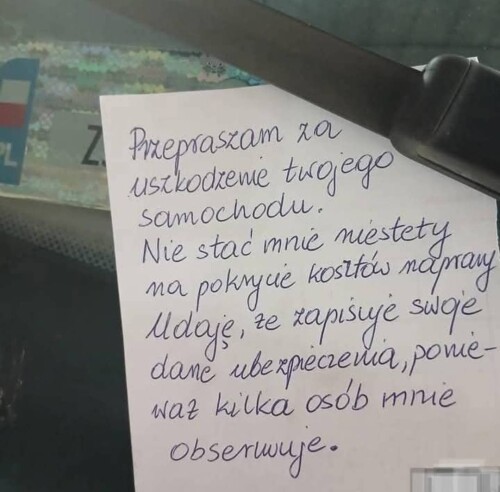 PL
Z
Przepraszam za
uszkodzenie twojego
samochodu.
Nie stać mnie niestety
na pokrycie kosztów naprawy
Udaję, że zapisuję swoje
dane ubezpieczenia, ponie-
waż kilka osób mnie
obserwuje.